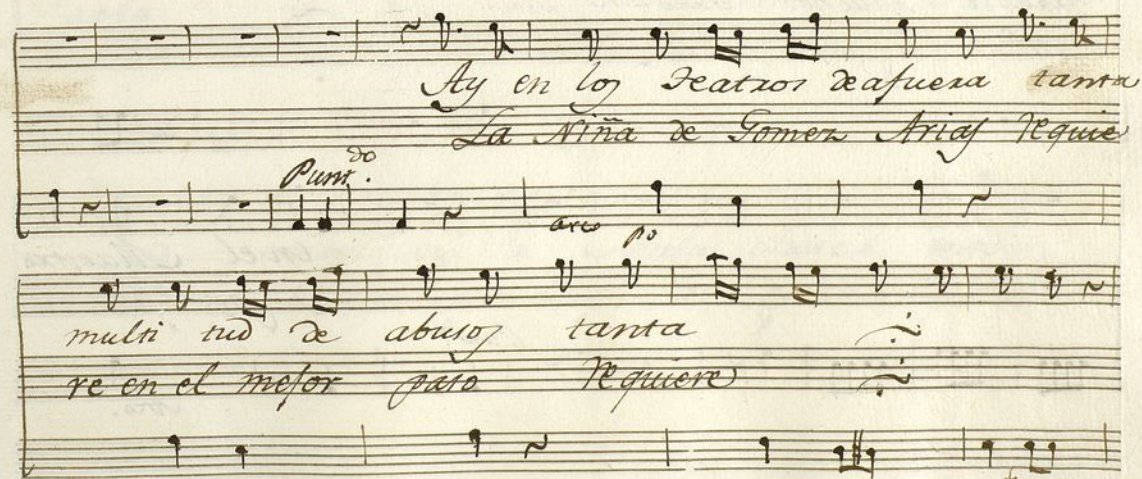 Ay en los Teatros de afuera tanta
La Niña de Gomez Arias Requie
Punt.do
arco po
multi tud de abusos tanta
re en el mejor paso Requiere